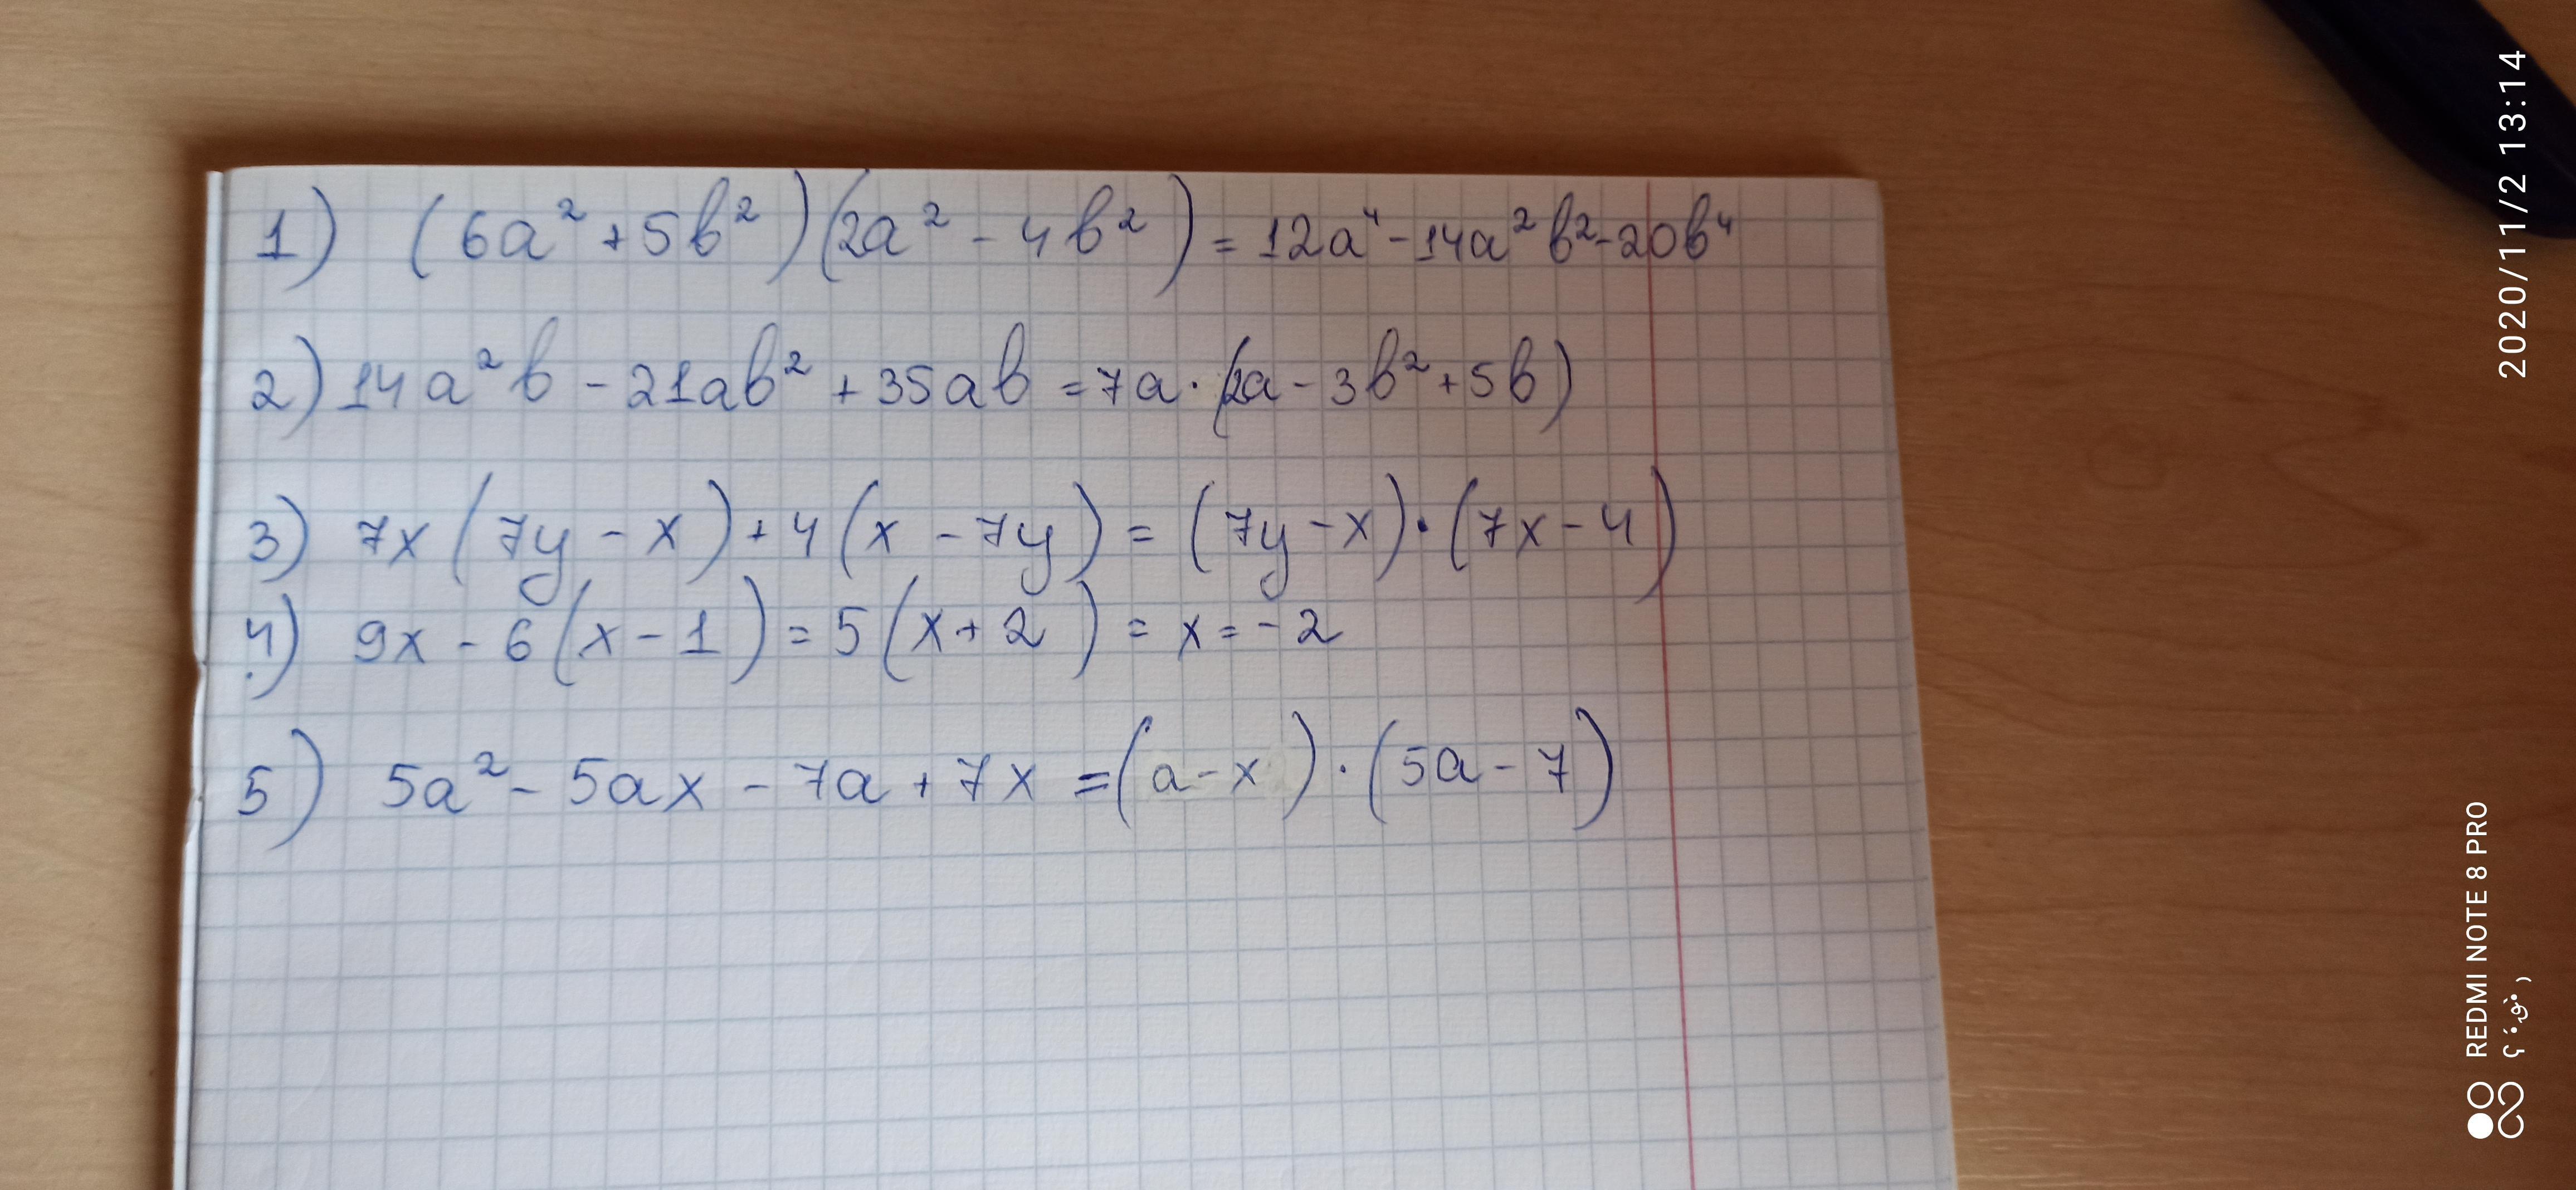 1) (6a² + 5b²)(2a² - 4b²) = 12a⁴ - 14a²b² - 20b⁴
2) 14a²b - 21ab² + 35ab = 7a · (2a - 3b² + 5b)
3) 7x(7y - x) + 4(x - 7y) = (7y - x) · (7x - 4)
4) 9x - 6(x - 1) = 5(x + 2) = x = -2
5) 5a² - 5ax - 7a + 7x = (a - x) · (5a - 7)
2020/11/2 13:14
REDMI NOTE 8 PRO